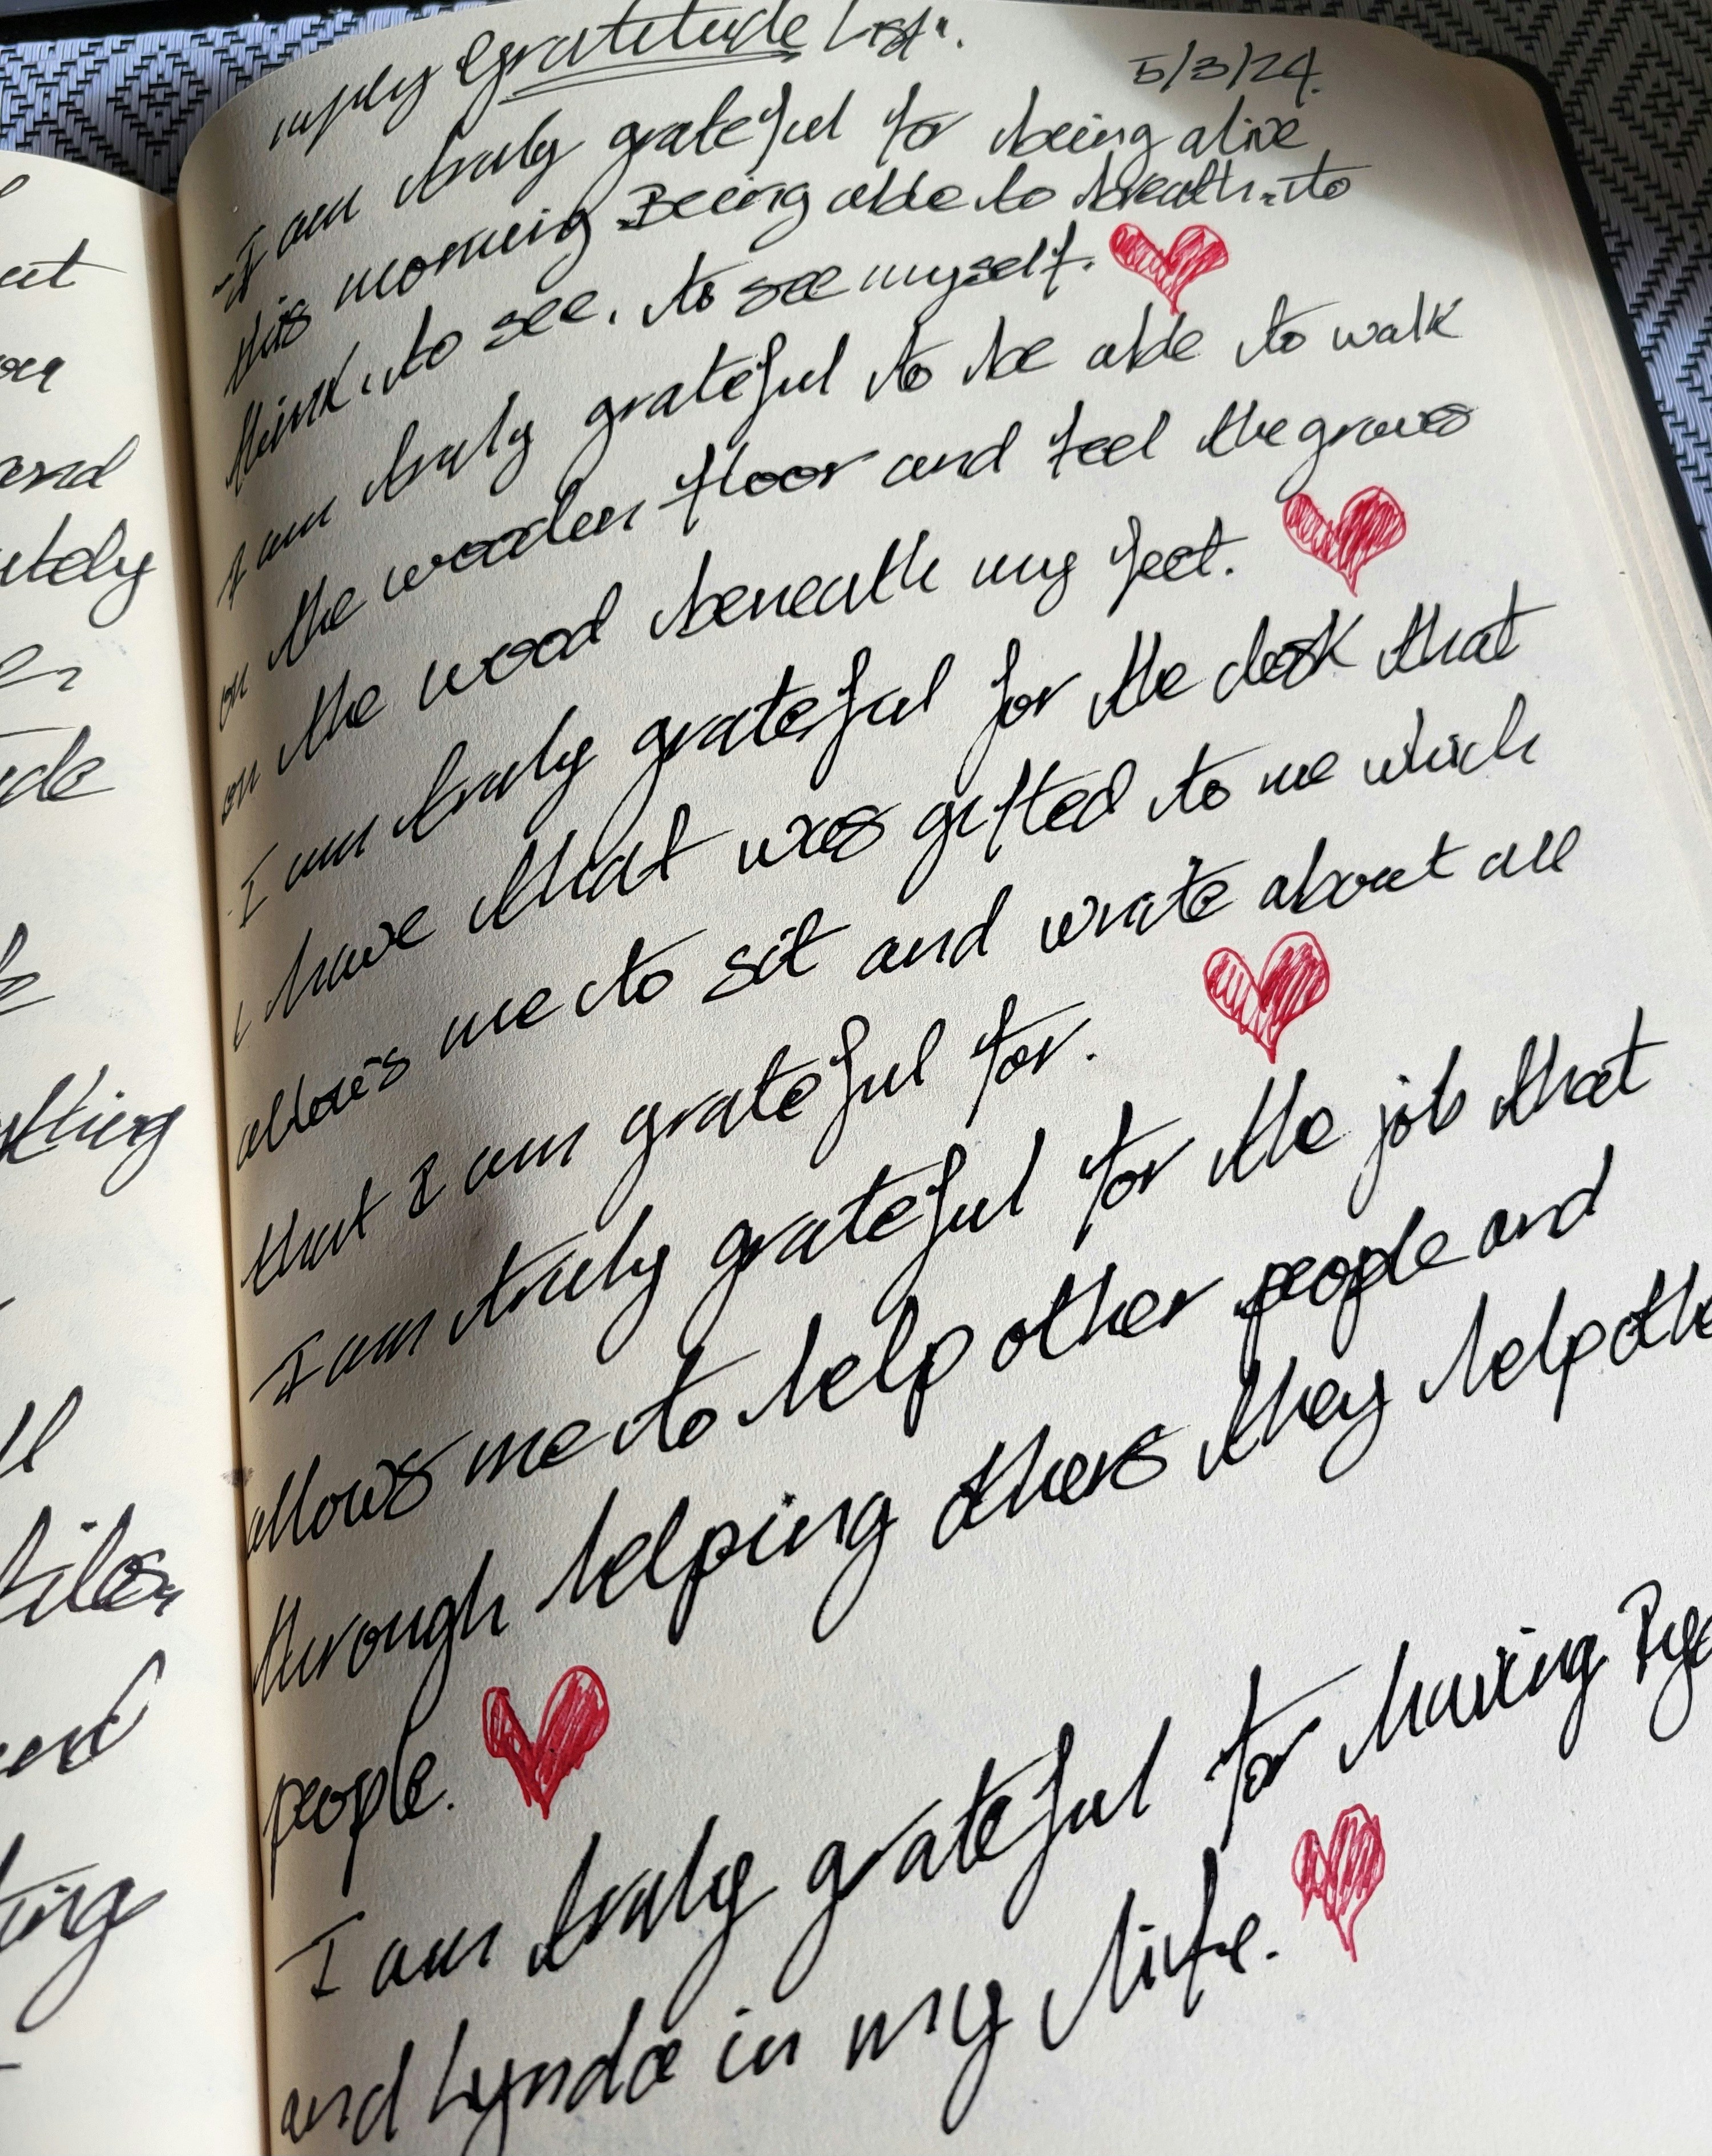 imply Gratitude List.
5/3/24.
I am truly grateful for being alive
this morning. Being able to breath. to
think, to see, to see myself.
I am truly grateful to be able to walk
on the wooden floor and feel the groves
on the wood beneath my feet.
I am truly grateful for the desk that
i have that was gifted to me which
allows me to sit and write about all
that I am grateful for.
I am truly grateful for the job that
allows me to help other people and
through helping others they help othe
people.
I am truly grateful for having
and Lynda in my life.